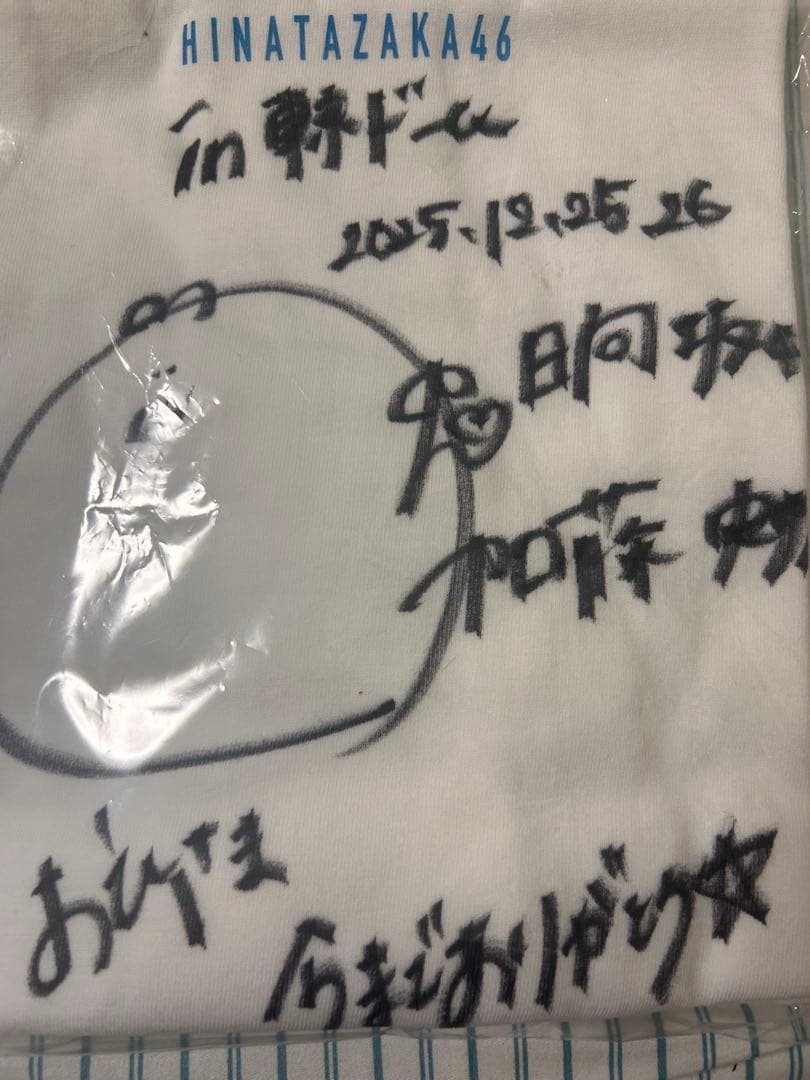 HINATAZAKA46
in 東京ドーム
2025.12.25 26
日向坂
加藤
おひさま
今までありがとう☆